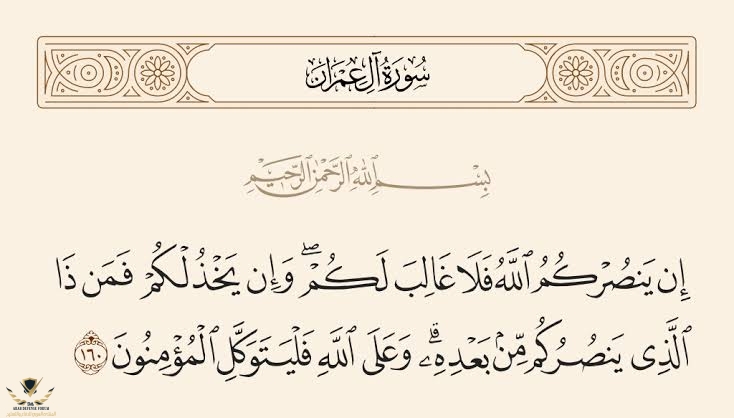 سُورَةُ آلِ عِمْرَان
بِسْمِ ٱللَّهِ ٱلرَّحْمَٰنِ ٱلرَّحِيمِ
إِن يَنصُرْكُمُ ٱللَّهُ فَلَا غَالِبَ لَكُمْ ۖ وَإِن يَخْذُلْكُمْ فَمَن ذَا
ٱلَّذِى يَنصُرُكُم مِّنۢ بَعْدِهِۦ ۗ وَعَلَى ٱللَّهِ فَلْيَتَوَكَّلِ ٱلْمُؤْمِنُونَ ١٦٠
ARAB DEFENSE FORUM